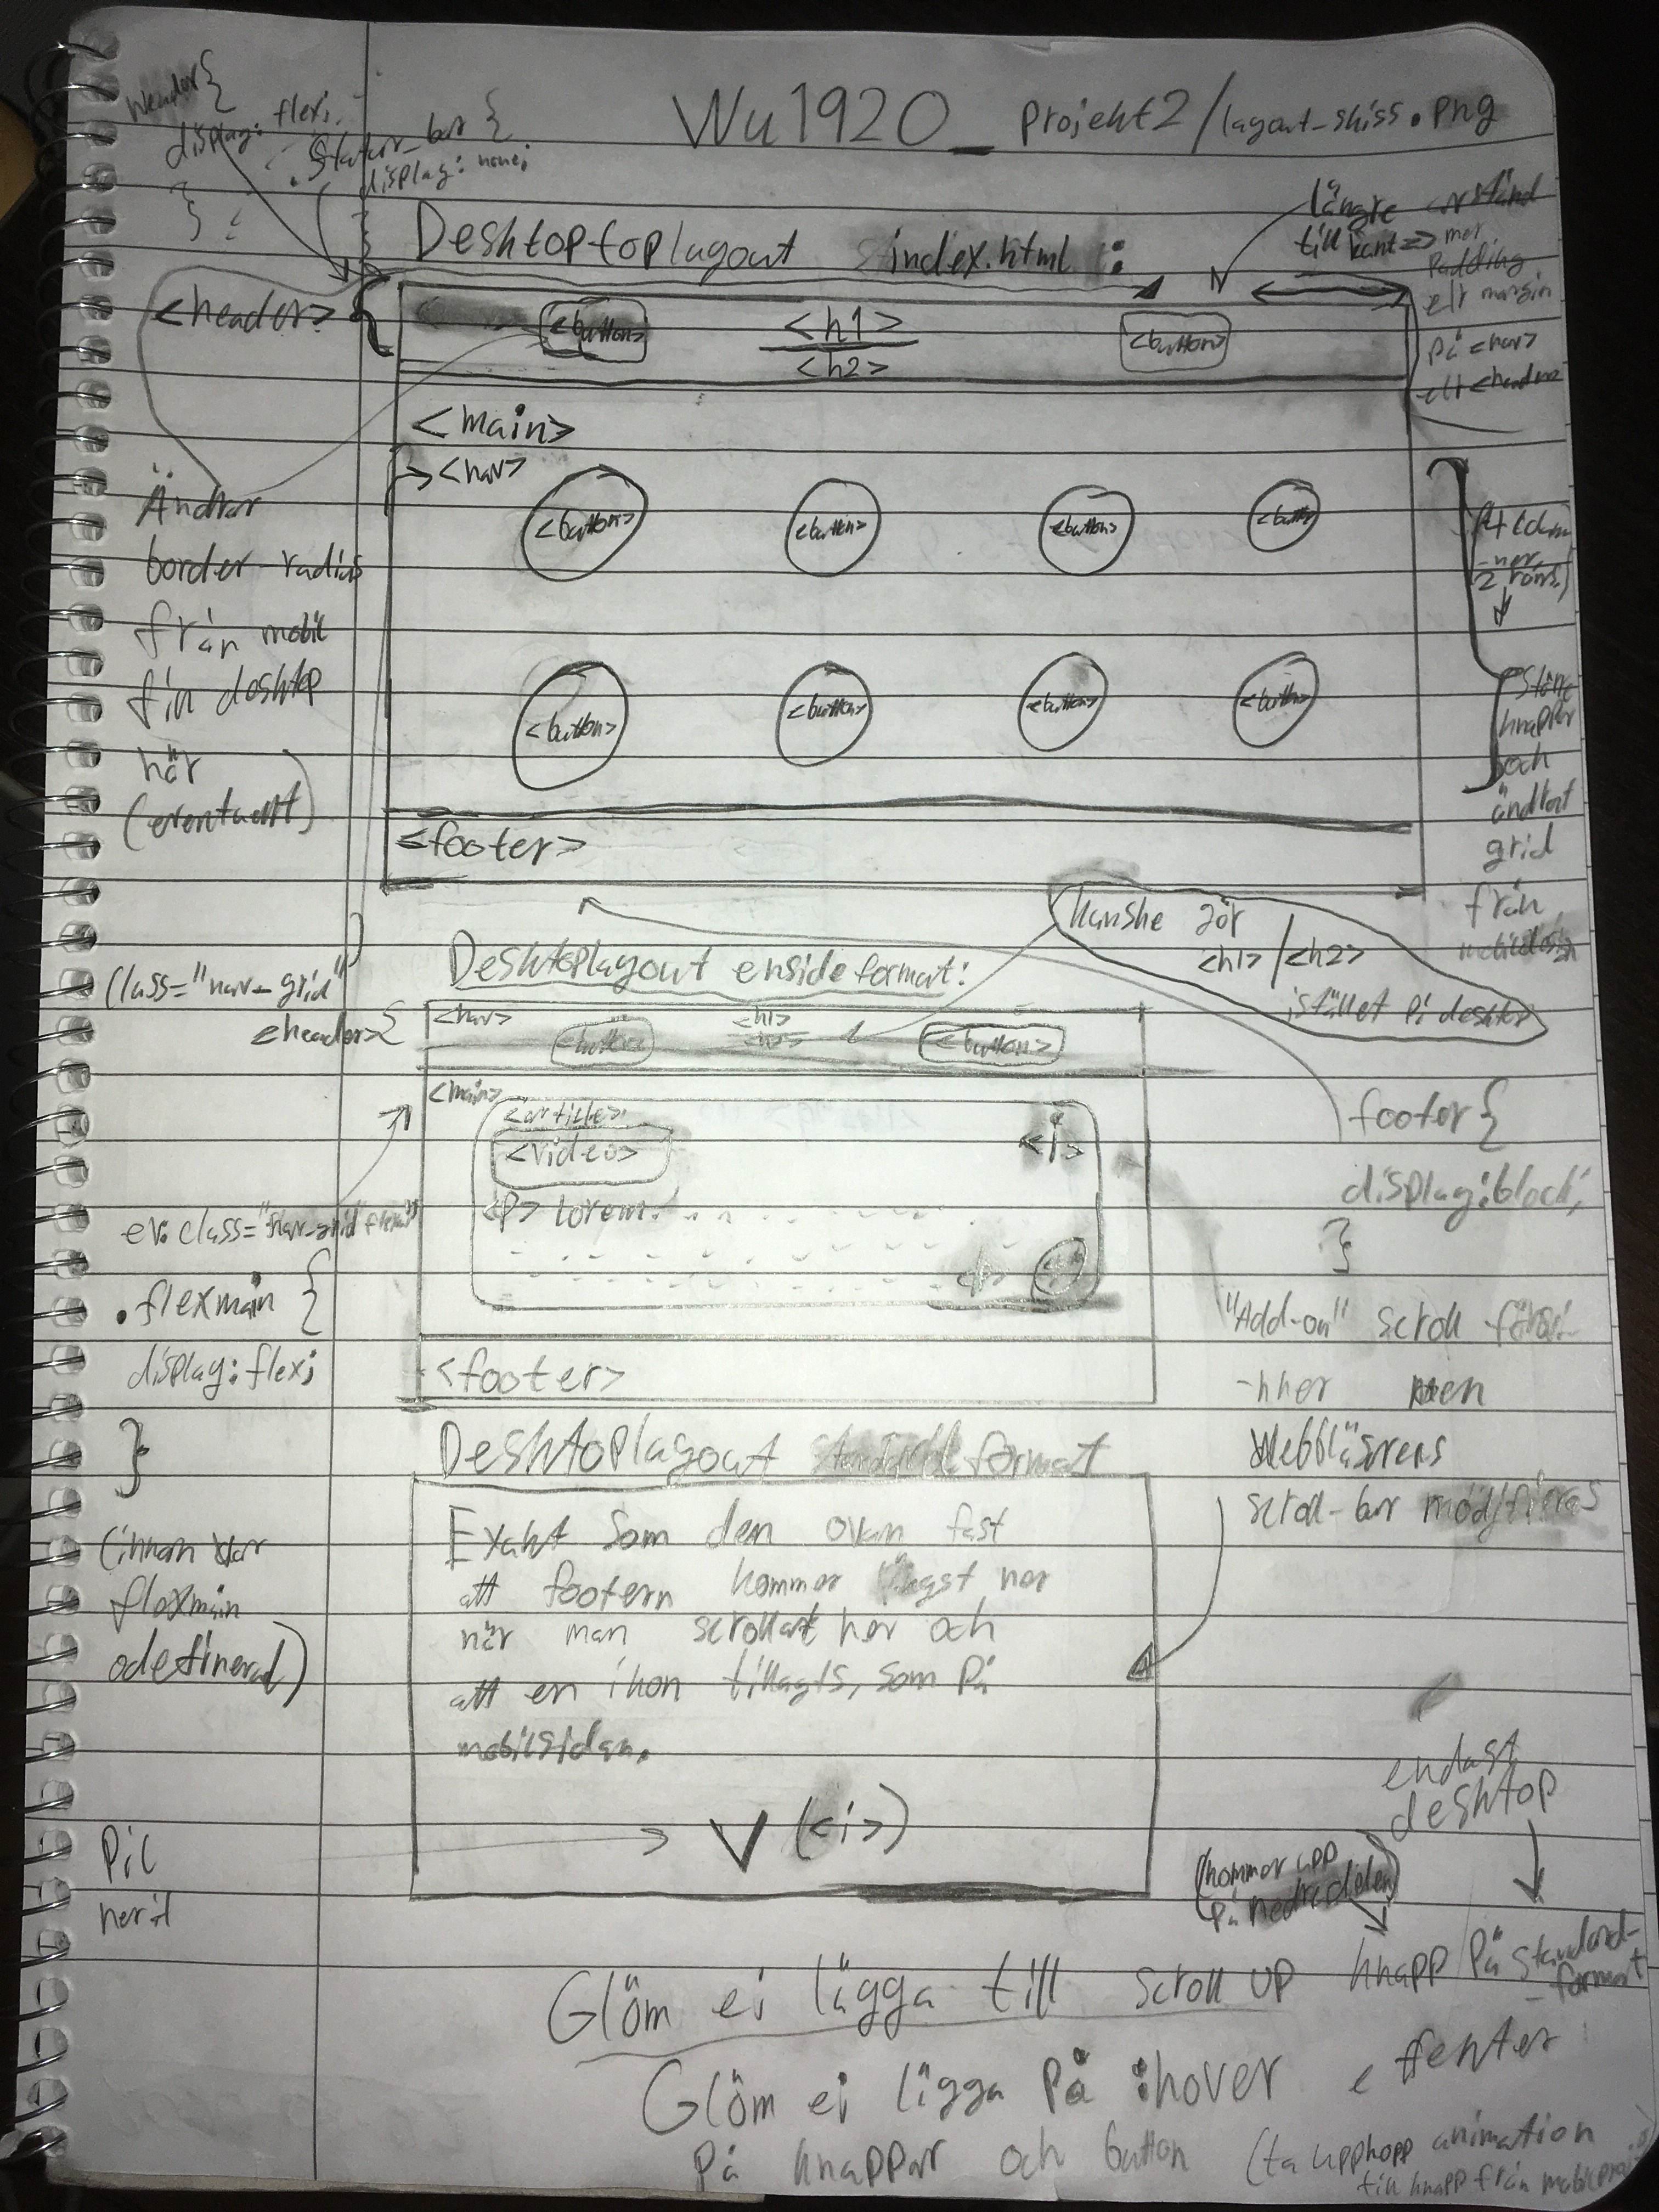 header{
display: flex;
}
.statur_bar {
display: none;
}
Wu1920_projekt2/layout-skiss.png
Desktoptoplayout index.html:
längre avstånd
till kant => mer
padding
elr margin
på <nav>
elr <header>
<header> {
<button>
<h1>
<h2>
<button>
<main>
<nav>
<button> <button> <button> <button>
<button> <button> <button> <button>
<footer>
Ändrar
border-radius
från mobil
till desktop
här
(eventuellt)
2 rows)
större
knappar
och
ändrat
grid
från
kanske gör
<h1>/<h2>
istället på desktop
Desktoplayout ensideformat:
class="nav-grid"
<header>{
<nav>
<button>
<h1>
<button>
<main>
<article>
<video>
<i>
<p> Lorem
<footer>
ev. class=
.flexmain {
display: flex;
}
(innan var
flexmain
odefinerad)
footer{
display: block;
}
"Add-on" scroll försvi-
nner men
Webbläsrens
scroll-bar modifieras
Desktoplayout standardformat
Exakt som den ovan fast
att footern kommer längst ner
när man scrollat ner och
att en ikon tillagts, som på
mobilsidan.
V (<i>)
Pil
neråt
endast
desktop
(kommer upp
på nedredelen)
Glöm ej lägga till scroll up knapp på standard-
format
Glöm ej lägga på :hover effekter
på knappar och button (ta upphopp animation
till knapp från